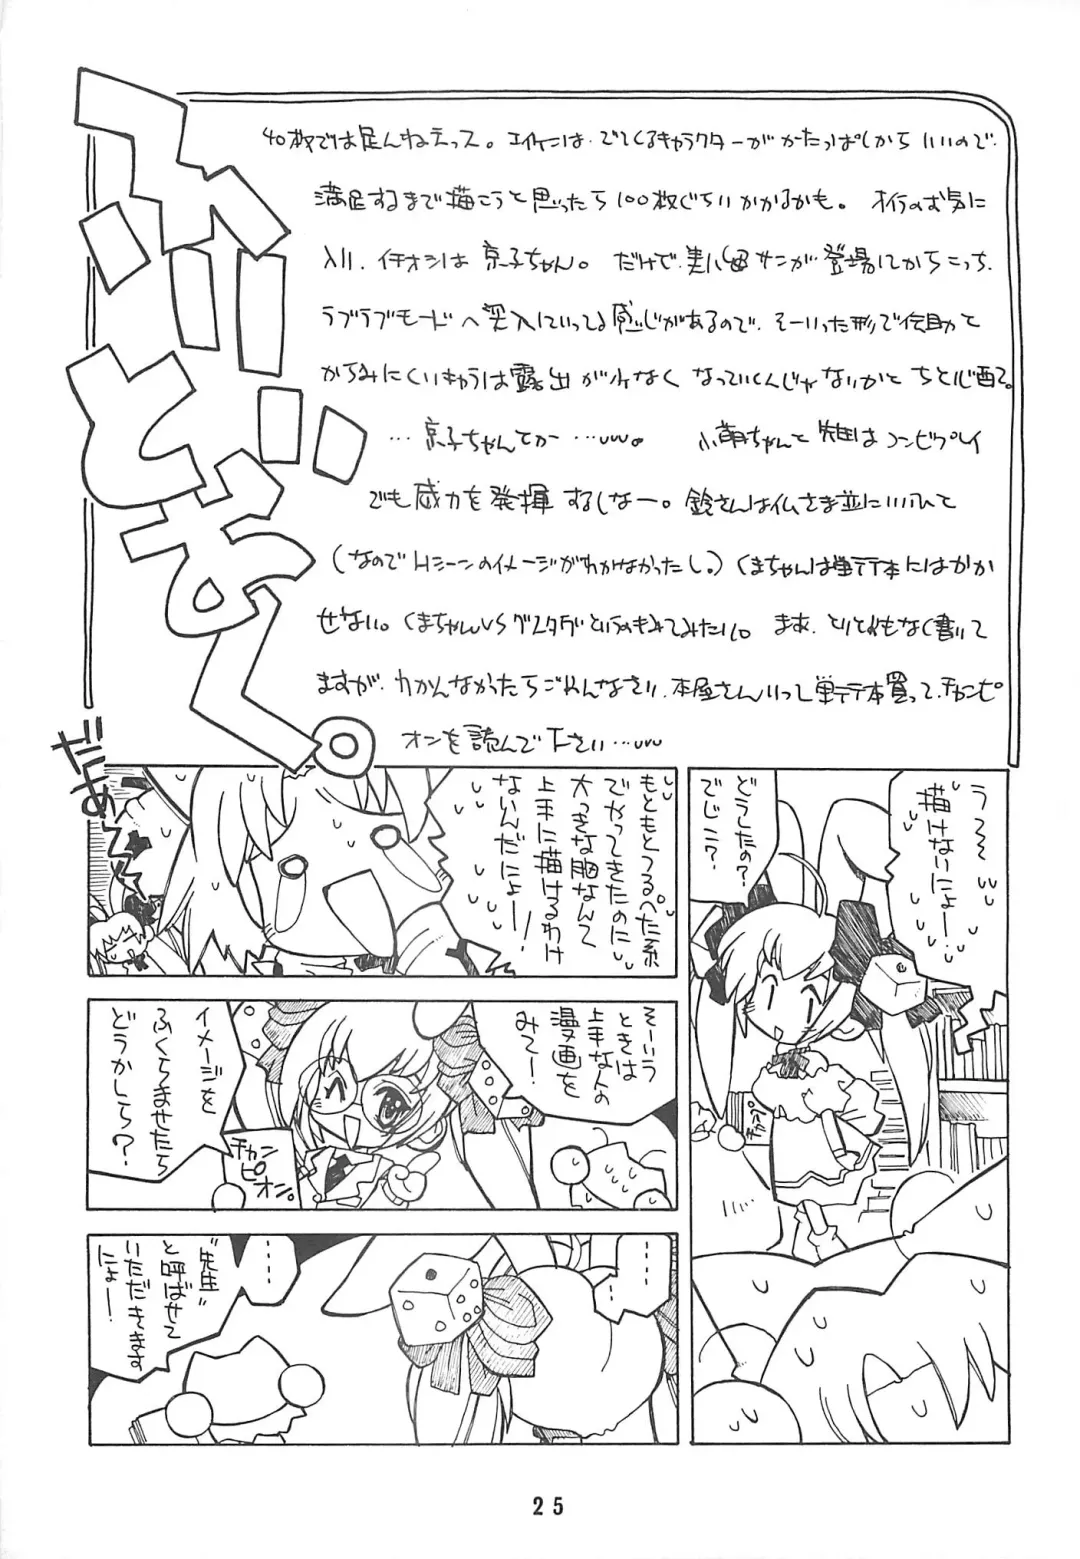 あとがく。
40枚では足んねえっス。エイケンは、でてくるキャラクターがかたっぱしからいいので、
満足するまで描こうと思ったら100枚ぐらいかかるかも。オイラのお気に
入り、イチオシは京子ちゃん。だけど、美
サンが登場してからこっち、
ラブラブモードへ突入していってる感じがあるので、そーいった形で伝助と
からみにくいキャラは露出が少なくなっていくんじゃないかとちと心配で。
…京子ちゃんてか…
小萌ちゃんと
はコンビプレイ
でも威力を発揮するしなー。鈴さんは仏さま並にいいひと
(なのでHシーンのイメージがわかなかったし。)くまちゃんは単行本にはかか
せない。くまちゃんVSグスタフというのもみてみたい。まあ、とりとめもなく書いて
ますが、わかんなかったらごめんなさい、本屋さんいって単行本買って、チャンピ
オンを読んで下さい…
うう〜描けないにょー、
どうしたの?でじこ?
チャンプ
もともとつるぺた系
でやってきたのに
大っきな胸なんて
上手に描けるわけ
ないんだにょー!
だああ〜
そーいう
ときは
上手な人の
漫画を
みて!
イメージを
ふくらませたら
どうかしら?
チャン
ピオン。
……
……
"先生"
と呼ばせて
いただきます
にょー!
25